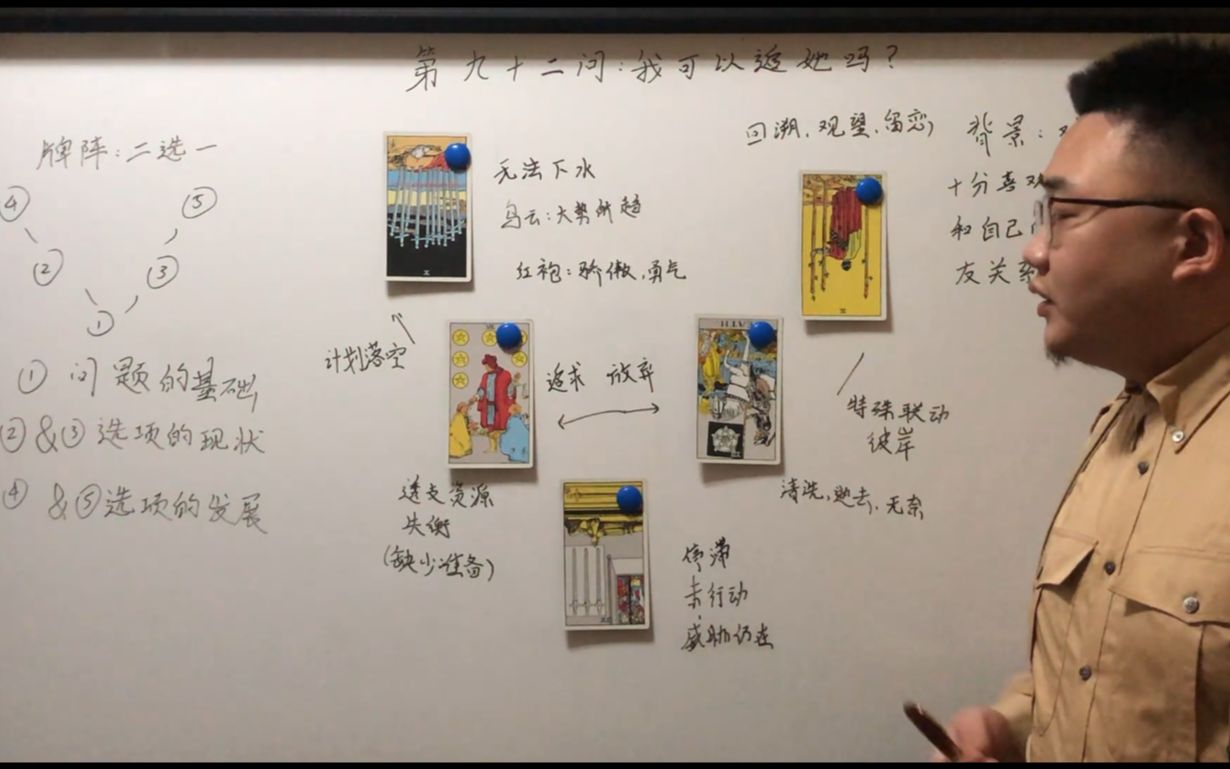 第九十二问:我可以追她吗?
牌阵:二选一
④ ⑤
② ③
①
① 问题的基础
②&③选项的现状
④&⑤选项的发展
无法下水
乌云:大势所趋
红袍:骄傲,勇气
计划落空
追求 放弃
透支资源
失衡
(缺少准备)
停滞
未行动
威胁仍在
清洗,逝去,无奈
特殊联动
彼岸
回溯,观望,留恋
背景:
十分喜欢
和自己
友关系